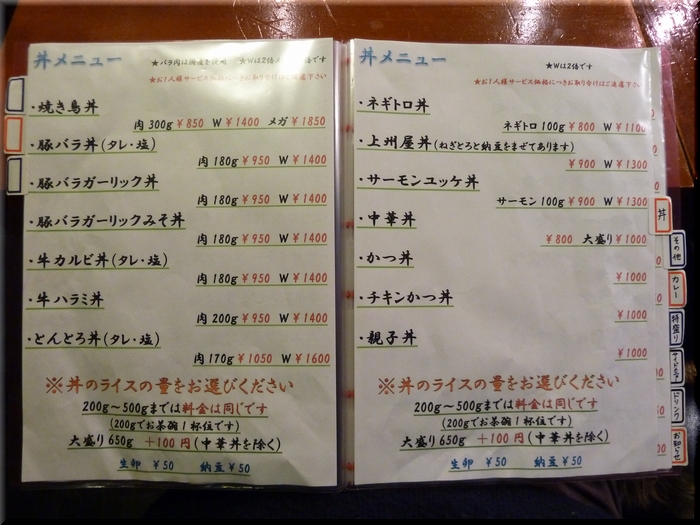 丼メニュー
★バラ肉は国産を使用 ★Wは2倍 メガは3倍です
★お1人様サービス価格につきお取り分けはご遠慮下さい
・焼き鳥丼
肉 300g ¥850 W ¥1400 メガ ¥1850
・豚バラ丼(タレ・塩)
肉 180g ¥950 W ¥1400
・豚バラガーリック丼
肉 180g ¥950 W ¥1400
・豚バラガーリックみそ丼
肉 180g ¥950 W ¥1400
・牛カルビ丼(タレ・塩)
肉 180g ¥950 W ¥1400
・牛ハラミ丼
肉 200g ¥950 W ¥1400
・とんとろ丼(タレ・塩)
肉 170g ¥1050 W ¥1600
※丼のライスの量をお選びください
200g〜500gまでは料金は同じです
(200gでお茶碗1杯位です)
大盛り650g +100円(中華丼を除く)
生卵 ¥50 納豆 ¥50
丼メニュー
★Wは2倍です
★お1人様サービス価格につきお取り分けはご遠慮下さい
・ネギトロ丼
ネギトロ 100g ¥800 W ¥1100
・上州屋丼(ねぎとろと納豆をまぜてあります)
¥900 W ¥1300
・サーモンユッケ丼
サーモン 100g ¥900 W ¥1300
・中華丼
¥800 大盛り ¥1000
・かつ丼
¥1000
・チキンかつ丼
¥1000
・親子丼
¥1000
※丼のライスの量をお選びください
200g〜500gまでは料金は同じです
(200gでお茶碗1杯位です)
大盛り650g +100円(中華丼を除く)
生卵 ¥50 納豆 ¥50
丼
その他
カレー
特盛り
サイドメニュー
ドリンク
お知らせ